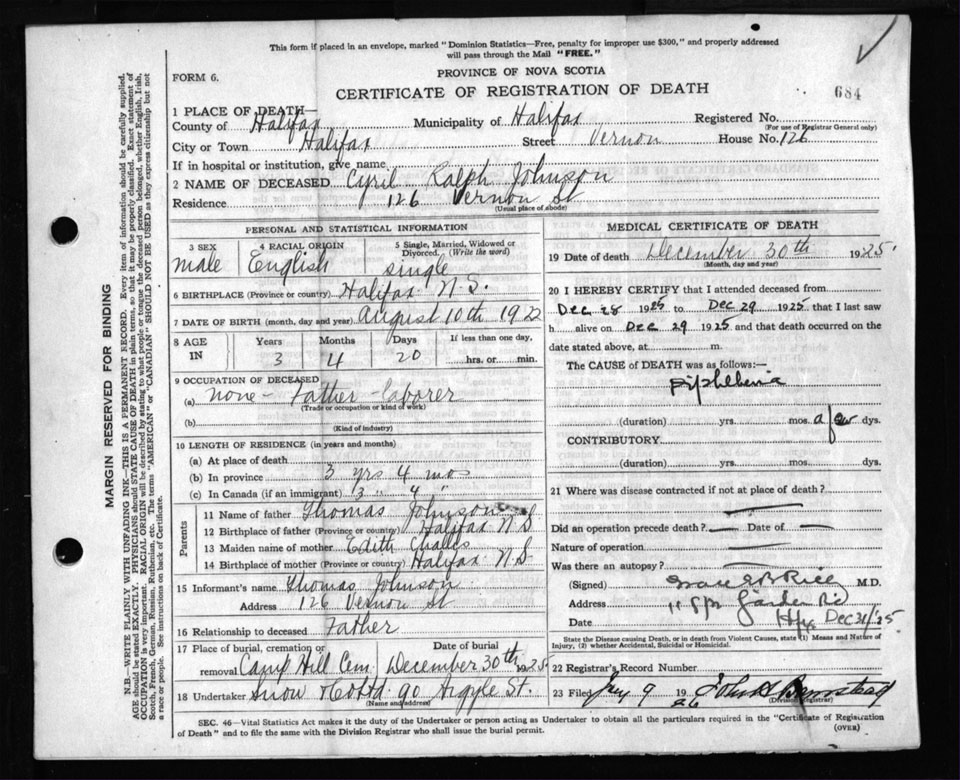 This form if placed in an envelope, marked "Dominion Statistics—Free, penalty for improper use $300," and properly addressed
will pass through the Mail "FREE."
FORM 6.
PROVINCE OF NOVA SCOTIA
CERTIFICATE OF REGISTRATION OF DEATH
684
1 PLACE OF DEATH—
County of Halifax Municipality of Halifax Registered No.
(For use of Registrar General only)
City or Town Halifax Street Vernon House No. 126
If in hospital or institution, give name
2 NAME OF DECEASED Cyril Ralph Johnson
Residence 126 Vernon St
(Usual place of abode)
PERSONAL AND STATISTICAL INFORMATION
3 SEX 4 RACIAL ORIGIN 5 Single, Married, Widowed or Divorced. (Write the word)
male English single
6 BIRTHPLACE (Province or country) Halifax N.S.
7 DATE OF BIRTH (month, day and year) August 10th 1922
8 AGE IN Years Months Days If less than one day,
3 4 20 hrs. or min.
9 OCCUPATION OF DECEASED
(a) none - Father - laborer
(Trade or occupation or kind of work)
(b)
(Kind of industry)
10 LENGTH OF RESIDENCE (in years and months)
(a) At place of death
(b) In province 3 yrs 4 mos
(c) In Canada (if an immigrant) 3 " 4 "
Parents
11 Name of father Thomas Johnson
12 Birthplace of father (Province or country) Halifax N S
13 Maiden name of mother Edith
14 Birthplace of mother (Province or country) Halifax N.S
15 Informant's name Thomas Johnson
Address 126 Vernon St
16 Relationship to deceased Father
17 Place of burial, cremation or removal Date of burial
Camp Hill Cem. December 30th 1925
18 Undertaker Snow & Co Ltd 90 Argyle St.
(Name and address)
MEDICAL CERTIFICATE OF DEATH
19 Date of death December 30th 1925.
(Month, day and year)
20 I HEREBY CERTIFY that I attended deceased from
Dec 28 1925 to Dec 29 1925 that I last saw
h alive on Dec 29 1925 and that death occurred on the
date stated above, at m.
The CAUSE OF DEATH was as follows:—
Diphtheria
(duration) yrs. mos. a few dys.
CONTRIBUTORY
(duration) yrs. mos. dys.
21 Where was disease contracted if not at place of death?
Did an operation precede death? — Date of —
Nature of operation
Was there an autopsy?
(Signed) Rice M.D.
Address Garden Rd
Date Hfx Dec 31/25
State the Disease causing Death, or in death from Violent Causes, state (1) Means and Nature of
Injury, (2) whether Accidental, Suicidal or Homicidal.
22 Registrar's Record Number
23 Filed Jany 9 1926
(Division Registrar)
SEC. 46—Vital Statistics Act makes it the duty of the Undertaker or person acting as Undertaker to obtain all the particulars required in the "Certificate of Registration
of Death" and to file the same with the Division Registrar who shall issue the burial permit.
(OVER)
MARGIN RESERVED FOR BINDING
N.B.—WRITE PLAINLY WITH UNFADING INK—THIS IS A PERMANENT RECORD. Every item of information should be carefully supplied.
AGE should be stated EXACTLY. PHYSICIANS should STATE CAUSE OF DEATH in plain terms, so that it may be properly classified. Exact statement of
OCCUPATION is very important. RACIAL ORIGIN will be described by stating to what people or tongue the deceased person belonged, whether English, Irish,
Scotch, French, German, Russian, Ruthenian, etc. The terms "AMERICAN" or "CANADIAN" SHOULD NOT BE USED as they express citizenship but not
a race or people. See instructions on back of Certificate.